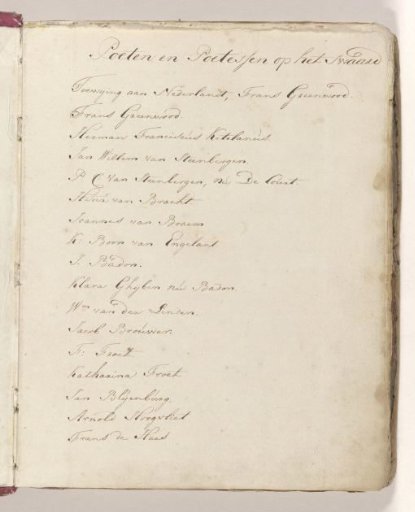 Poeten en Poetessen op het
Toewying aan Nederlandt, Frans Greenwood.
Frans Greenwood
Herman Franciscus Ketelanus
Jan Willem van Steenbergen
P C van Steenbergen, née De Court
van Bracht
Joannes van Braam
K: Boon van Engelant
J. Badon.
Klara Ghyben née Badon
Wm van der Linden.
Jacob Brouwer.
F: Froet
Katharina Froet
Jan Blyenburg
Arnold Hoogvliet
Frans de Haes